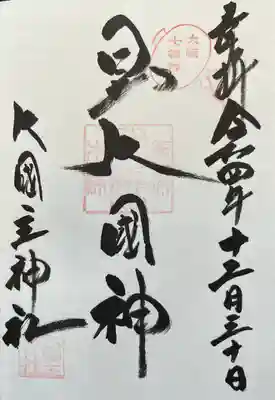 奉拝 令和四年十二月三十日
大阪
七福神
日出大國神
大國主神社